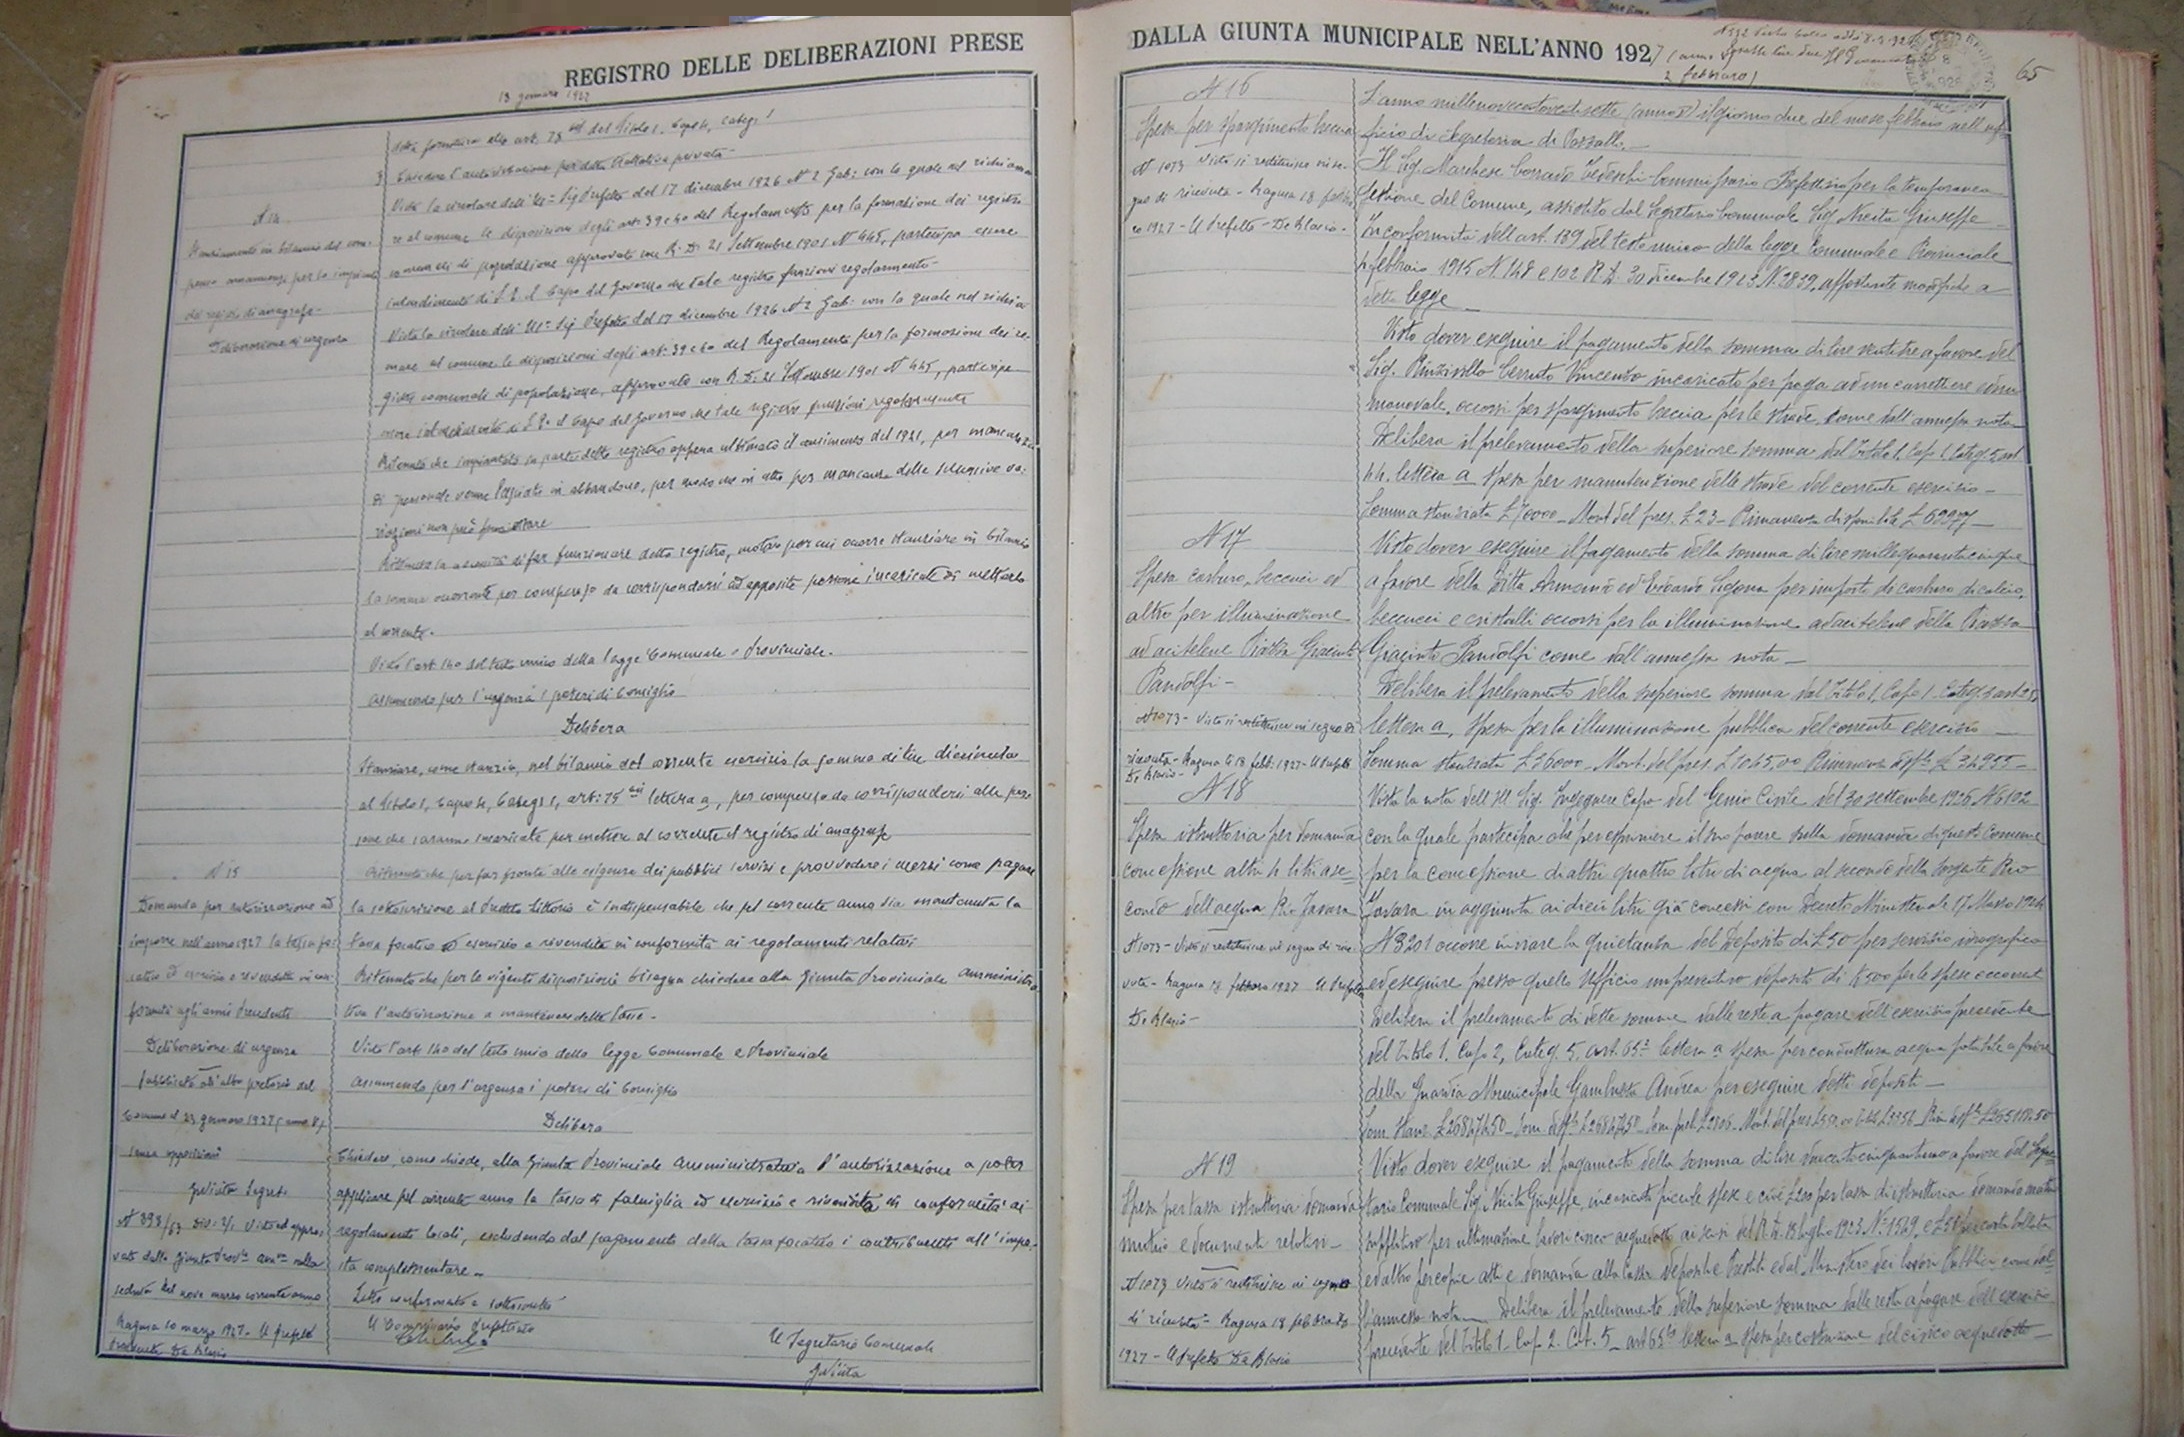 REGISTRO DELLE DELIBERAZIONI PRESE
13 gennaio 1927
alla fornitura
art. 78 del Titolo I, Capo 4, Categ. I
Vista la circolare dell'Ill. Sig. Prefetto del 17 dicembre 1926 N 2 Gab: con la quale nel richiama
re al comune le disposizioni degli art. 39 e 40 del Regolamento per la formazione dei registri
comunali di popolazione approvato con R. D. 21 Settembre 1901 N 445, partecipa essere
intendimento di S. E. il Capo del Governo che tale registro funzioni regolarmente -
Vista la circolare dell'Ill. Sig. Prefetto del 17 dicembre 1926 N 2 Gab: con la quale nel richia
mare al comune le disposizioni degli art. 39 e 40 del Regolamento per la formazione dei re-
gistri comunali di popolazione, approvato con R. D. 21 Settembre 1901 N 445, partecipa
essere intendimento di S. E. il Capo del Governo che tale registro funzioni regolarmente
Ritenuto che impiantato in parte detto registro appena ultimato il censimento del 1921, per mancanza
di personale venne lasciato in abbandono, per modo che in atto per mancanza delle successive va-
riazioni non può funzionare
Ritenuta la necessità di far funzionare detto registro, motivo per cui occorre stanziare in bilancio
la somma occorrente per compenso da corrispondersi ad apposite persone incaricate di metterlo
al corrente.
Visto l'art. 140 del testo unico della legge Comunale e Provinciale.
Assumendo per l'urgenza i poteri di Consiglio
Delibera
Stanziare, come stanzia, nel bilancio del corrente esercizio la somma di lire
al Titolo I, Capo 4, Categ. I, art: 75 lettera a, per compenso da corrispondersi alle per
sone che saranno incaricate per mettere al corrente il registro di anagrafe
N 14
Stanziamento in bilancio del com-
penso
dei registri di anagrafe -
Deliberazione di urgenza
N 15
Domanda per autorizzazione ad
imporre nell'anno 1927 la tassa fo-
catico ed esercizio e rivendita in con-
formità agli anni precedenti
Deliberazione di urgenza
Pubblicata all'albo pretorio del
Comune il 23 gennaio 1927 (anno V)
senza opposizioni
Ritenuto che per far fronte alle esigenze dei pubblici servizi e provvedere i mezzi come pagare
la sottoscrizione al Prestito Littorio è indispensabile che pel corrente anno sia mantenuta la
tassa focatico ed esercizio e rivendita in conformità ai regolamenti relativi
Ritenuto che per le vigenti disposizioni bisogna chiedere alla Giunta Provinciale Amministra
tiva l'autorizzazione a mantenere dette tasse.
Visto l'art. 140 del testo unico della legge Comunale e Provinciale
Assumendo per l'urgenza i poteri di Consiglio
Delibera
Chiedere, come chiede, alla Giunta Provinciale Amministrativa l'autorizzazione a poter
applicare pel corrente anno la tassa di famiglia ed esercizio e rivendita in conformità ai
regolamenti locali, escludendo dal pagamento della tassa focatico i contribuenti all'impo-
sta complementare -
Letto confermato e sottoscritto
Il Commissario Prefettizio
Il Segretario Comunale
Visto ed appro-
vato dalla Giunta Prov. Amm. nella
seduta del nove marzo corrente anno
Ragusa 10 marzo 1927 - Il Prefetto
Presidente De Blasio
DALLA GIUNTA MUNICIPALE NELL'ANNO 1927
2 febbraio)
65
N 16
Spesa per spargimento breccia
N 1073 Visto si restituisce in se-
gno di ricevuta - Ragusa 18 febbra
io 1927 - Il Prefetto - De Blasio -
L'anno millenovecentoventisette (anno V) il giorno due del mese febbraio nell'uf-
ficio di Segreteria di Pozzallo. -
Il Sig. Marchese Corrado Tedeschi Commissario Prefettizio per la temporanea
gestione del Comune, assistito dal Segretario Comunale Sig. Nicita Giuseppe -
In conformità dell'art. 139 del testo unico della legge Comunale e Provinciale
4 febbraio 1915 N. 148 e 102 R. D. 30 dicembre 1923 N. 2839, apportante modifiche a
detta legge -
Visto dover eseguire il pagamento della somma di lire ventitre a favore del
Sig. Rinzivillo Cerruto Vincenzo incaricato per paga ad un carrettiere ed un
manovale, occorsi per spargimento breccia per le strade, come dall'annessa nota -
Delibera il prelevamento della superiore somma dal Titolo I. Cap. I. Categ. 5 art.
44. lettera a spesa per manutenzione delle strade del corrente esercizio -
Somma stanziata £ 7000 - Mont. del pres. £ 23 - Rimanenza disponibile £ 6977 -
N 17
Spesa carburo, beccucci ed
altro per illuminazione
ad acitelene Piazza Giacinto
Pandolfi -
N 1073 - Visto si restituisce in segno di
ricevuta - Ragusa li 18 febb. 1927 - Il Prefetto
De Blasio -
Visto dover eseguire il pagamento della somma di lire millequarantacinque
a favore della Ditta Armando ed Edoardo Sigona per importo di carburo di calcio,
beccucci e cristalli occorsi per la illuminazione ad acitelene della Piazza
Giacinto Pandolfi come dall'annessa nota -
Delibera il prelevamento della superiore somma dal Titolo I. Capo I. Categ. 3 art. 35,
lettera a, spesa per la illuminazione pubblica del corrente esercizio -
Somma stanziata £ 36000 - Mont. del pres. £ 1045,00 Rimanenza disp. £ 34955 -
N 18
Spesa istruttoria per domanda
concessione altri 4 litri a se-
condo dell'acqua Rio Favara
N 1073 - Visto si restituisce in segno di rice-
vuta - Ragusa 18 febbraio 1927 Il Prefetto
De Blasio -
Vista la nota dell'Ill. Sig. Ingegnere Capo del Genio Civile del 30 settembre 1926 N 6102
con la quale partecipa che per esprimere il suo parere sulla domanda di questo Comune
per la concessione di altri quattro litri di acqua al secondo della sorgente Rio
Favara in aggiunta ai dieci litri già concessi con Decreto Ministeriale 17 Marzo 1924
N 3201 occorre inviare la quietanza del deposito di £ 50 per servizio idrografico
ed eseguire presso quello Ufficio un preventivo deposito di £ 500 per le spese occorrenti
Delibera il prelevamento di dette somme dalle reste a pagare dell'esercizio precedente
del Titolo I. Capo 2, Categ. 5. art. 65 lettera a spesa per conduttura acqua potabile a favore
della Guardia Municipale Gambuzza Andrea per eseguire detti depositi -
N 19
Spesa per tassa istruttoria domanda
mutuo e documenti relativi -
N 1073 Visto si restituisce in segno
di ricevuta - Ragusa 18 febbraio
1927 - Il Prefetto De Blasio
Visto dover eseguire il pagamento della somma di lire duecentocinquantuno a favore del Segre-
tario Comunale Sig. Nicita Giuseppe, incaricato per le spese e cioè £ 200 per tassa di istruttoria domanda mutuo
suppletivo per ultimazione lavori civico acquedotto ai sensi del R. D. 15 luglio 1923 N. 1549, e £ 51 per carta bollata
ed altro per copie atti e domanda alla Cassa Depositi e Prestiti ed al Ministero dei Lavori Pubblici come dal-
l'annessa nota - Delibera il prelevamento della superiore somma dalle reste a pagare dell'esercizio
precedente del Titolo I. Cap. 2. Cat. 5 - art 65 lettera a spesa per costruzione del civico acquedotto -